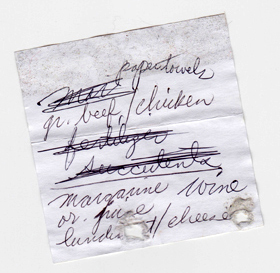 papertowels
gr. beef/chicken
fertilizer
succulents
margarine wine
or. juice
/cheese